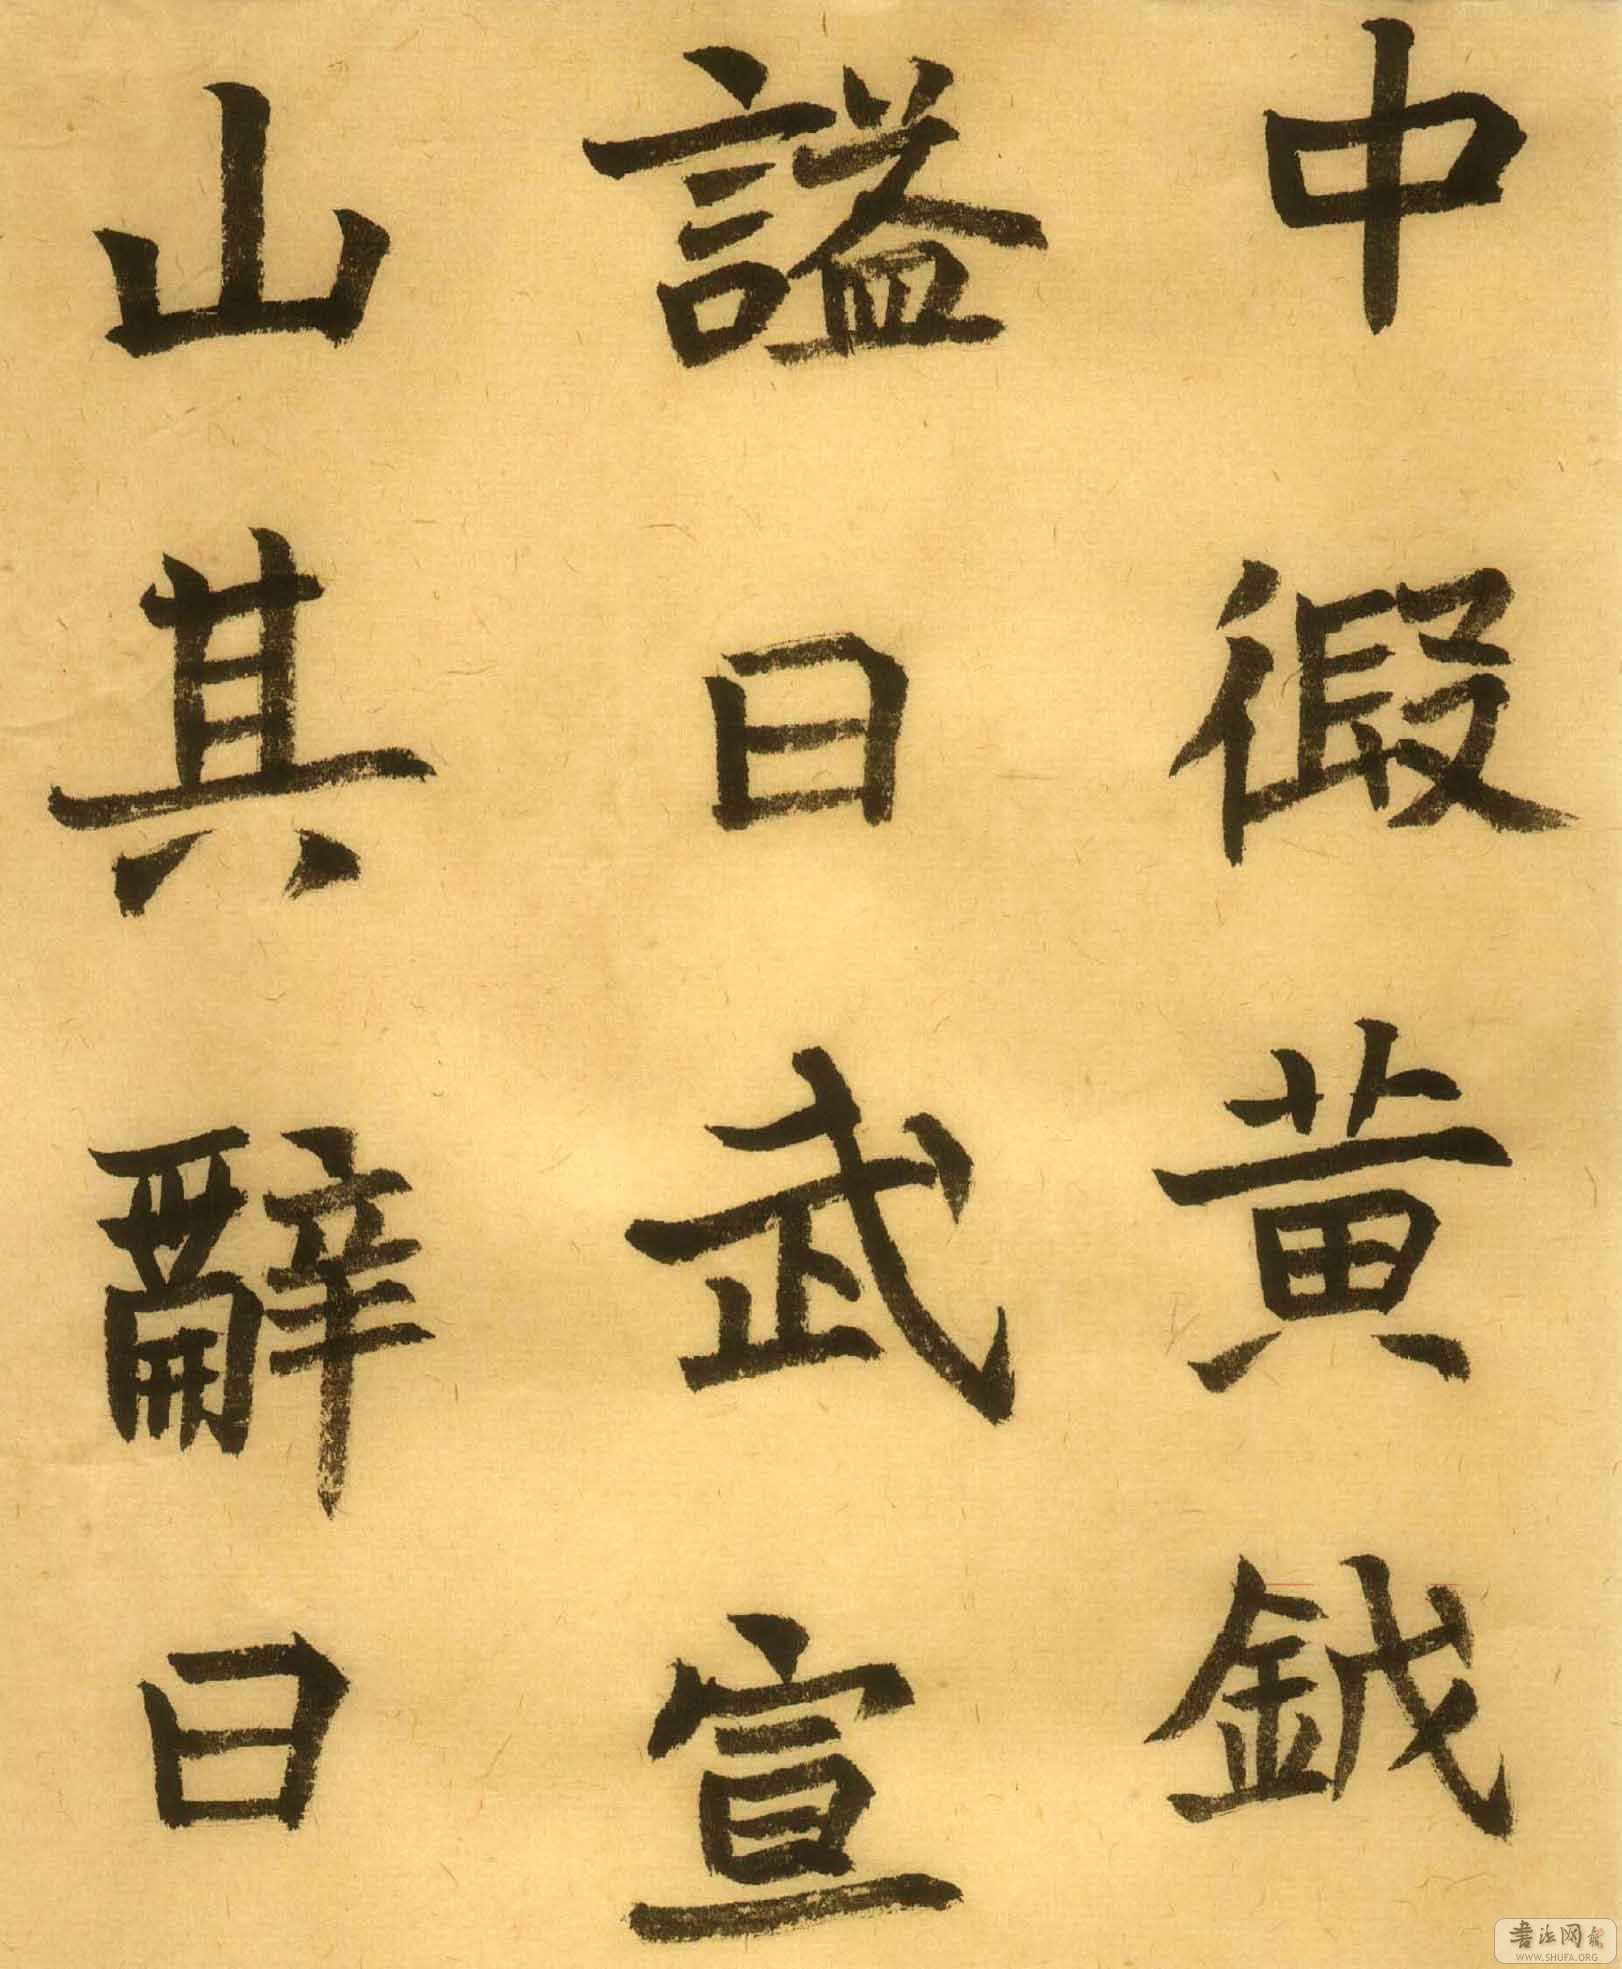 中徦黄鉞
謚曰武宣
山其辭曰
书法网
WWW.SHUFA.ORG